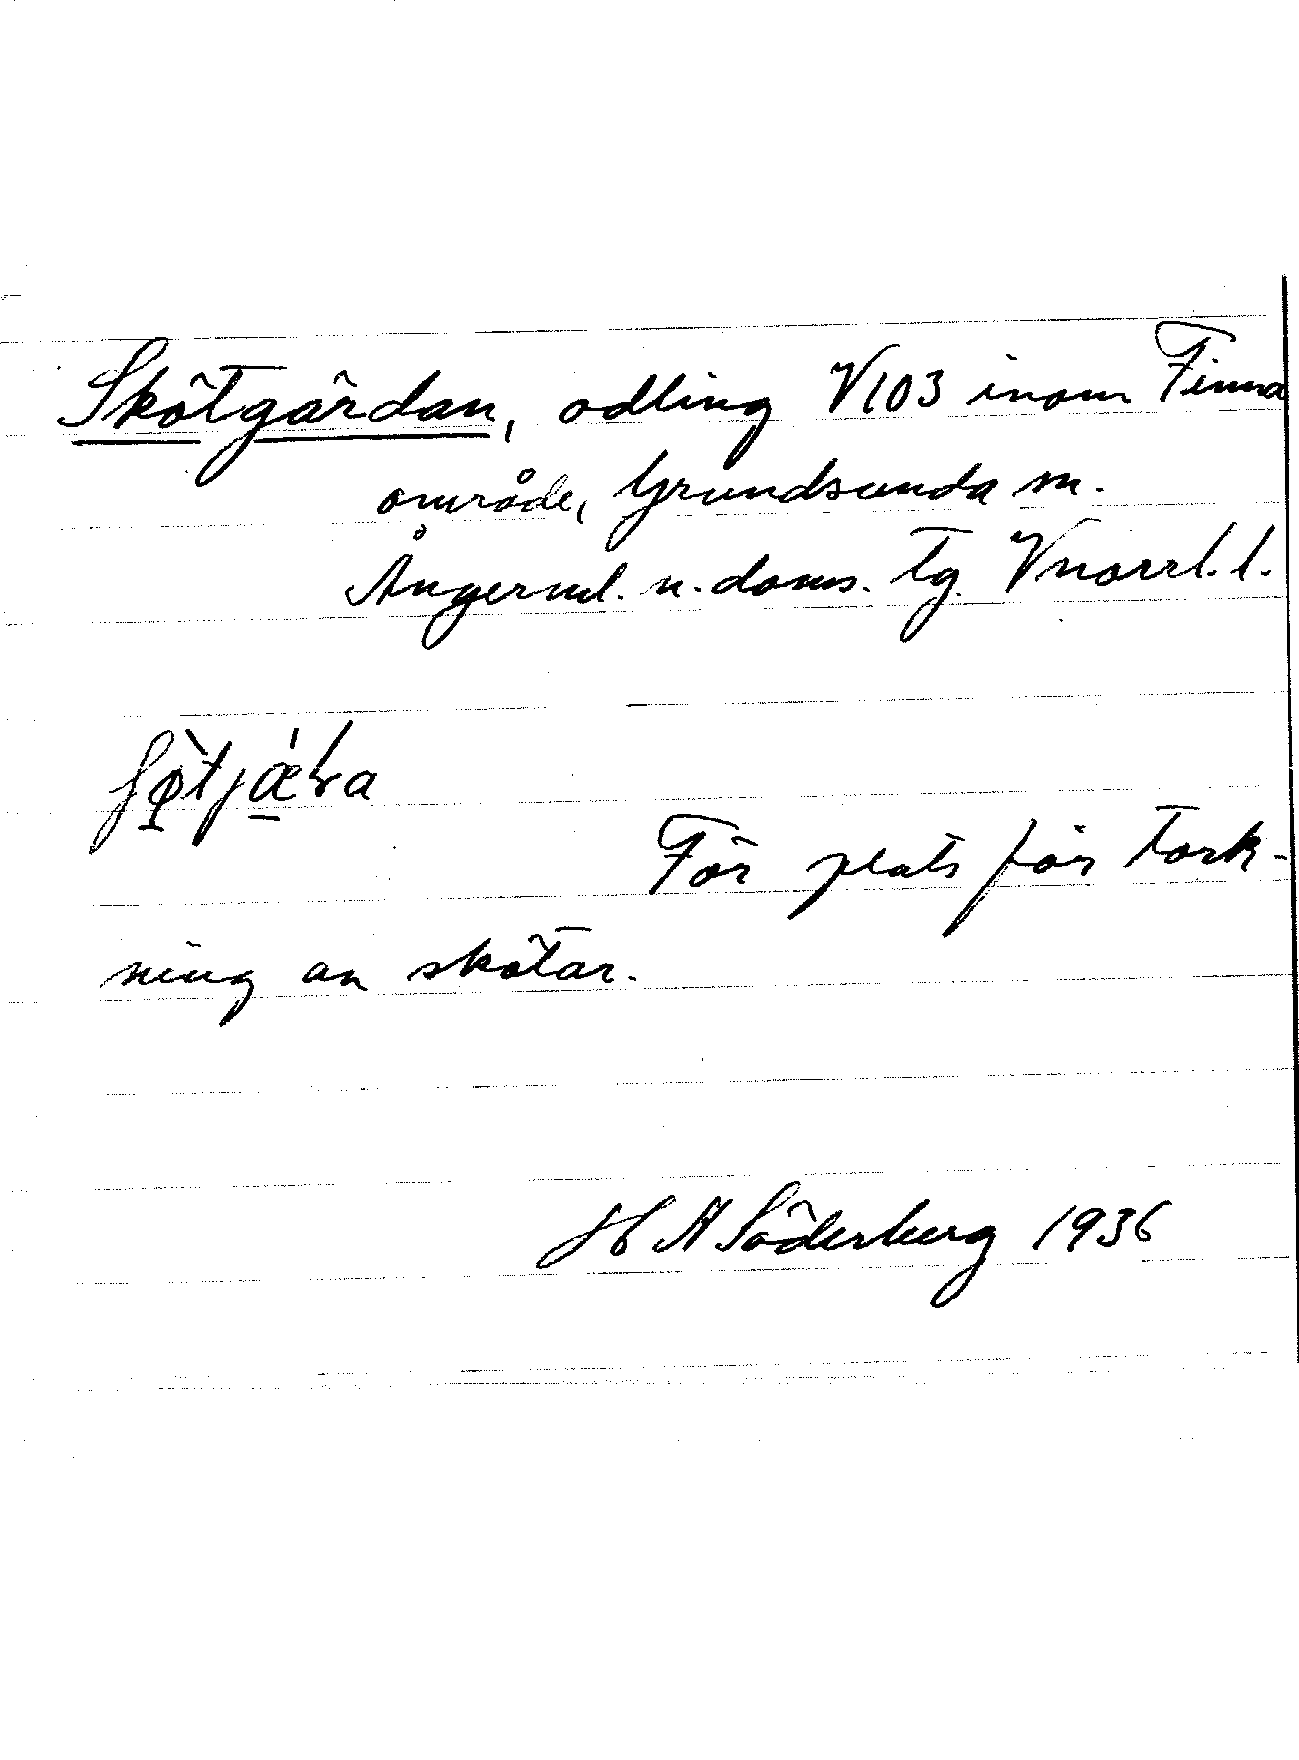 Skötgärdan, odling V103 inom Finna
område, Grundsunda sn.
Ångerml. n. doms. tg. Vnorrl. l.
För plats för tork-
ning av skötar.
H A Söderberg 1936